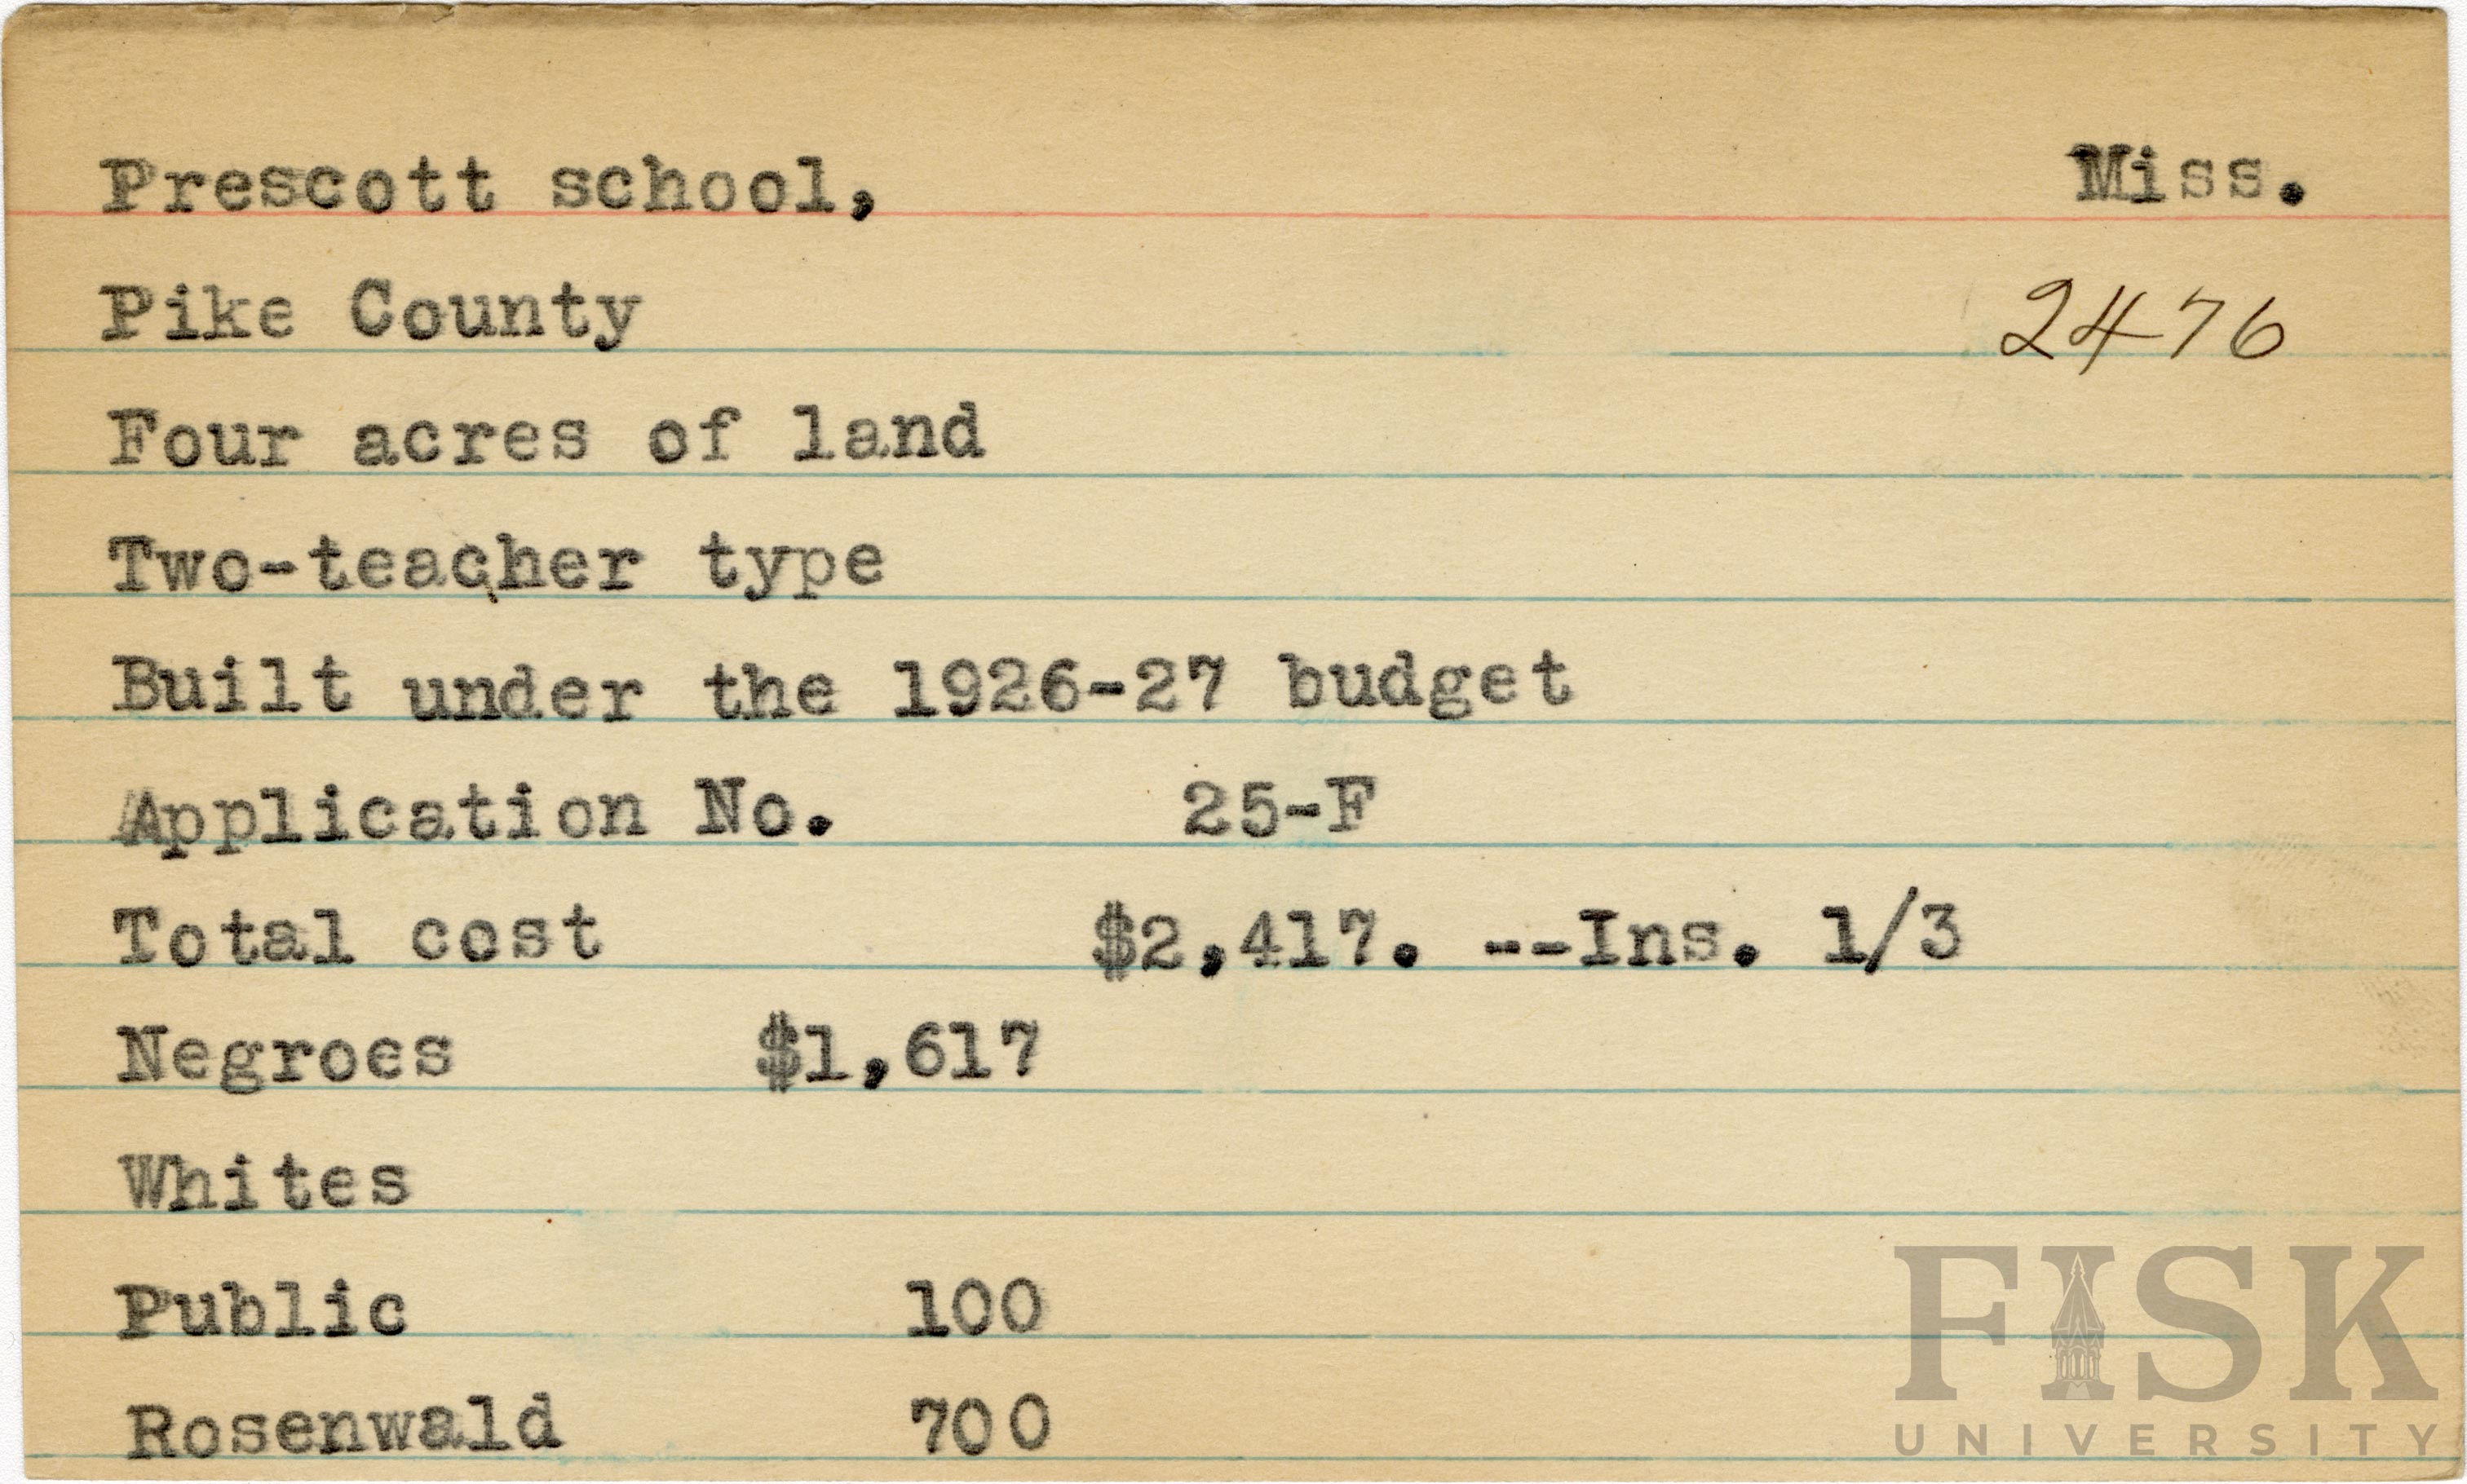 Prescott school, Miss.
Pike County 2476
Four acres of land
Two-teacher type
Built under the 1926-27 budget
Application No. 25-F
Total cost $2,417. --Ins. 1/3
Negroes $1,617
Whites
Public 100
Rosenwald 700
FISK
UNIVERSITY